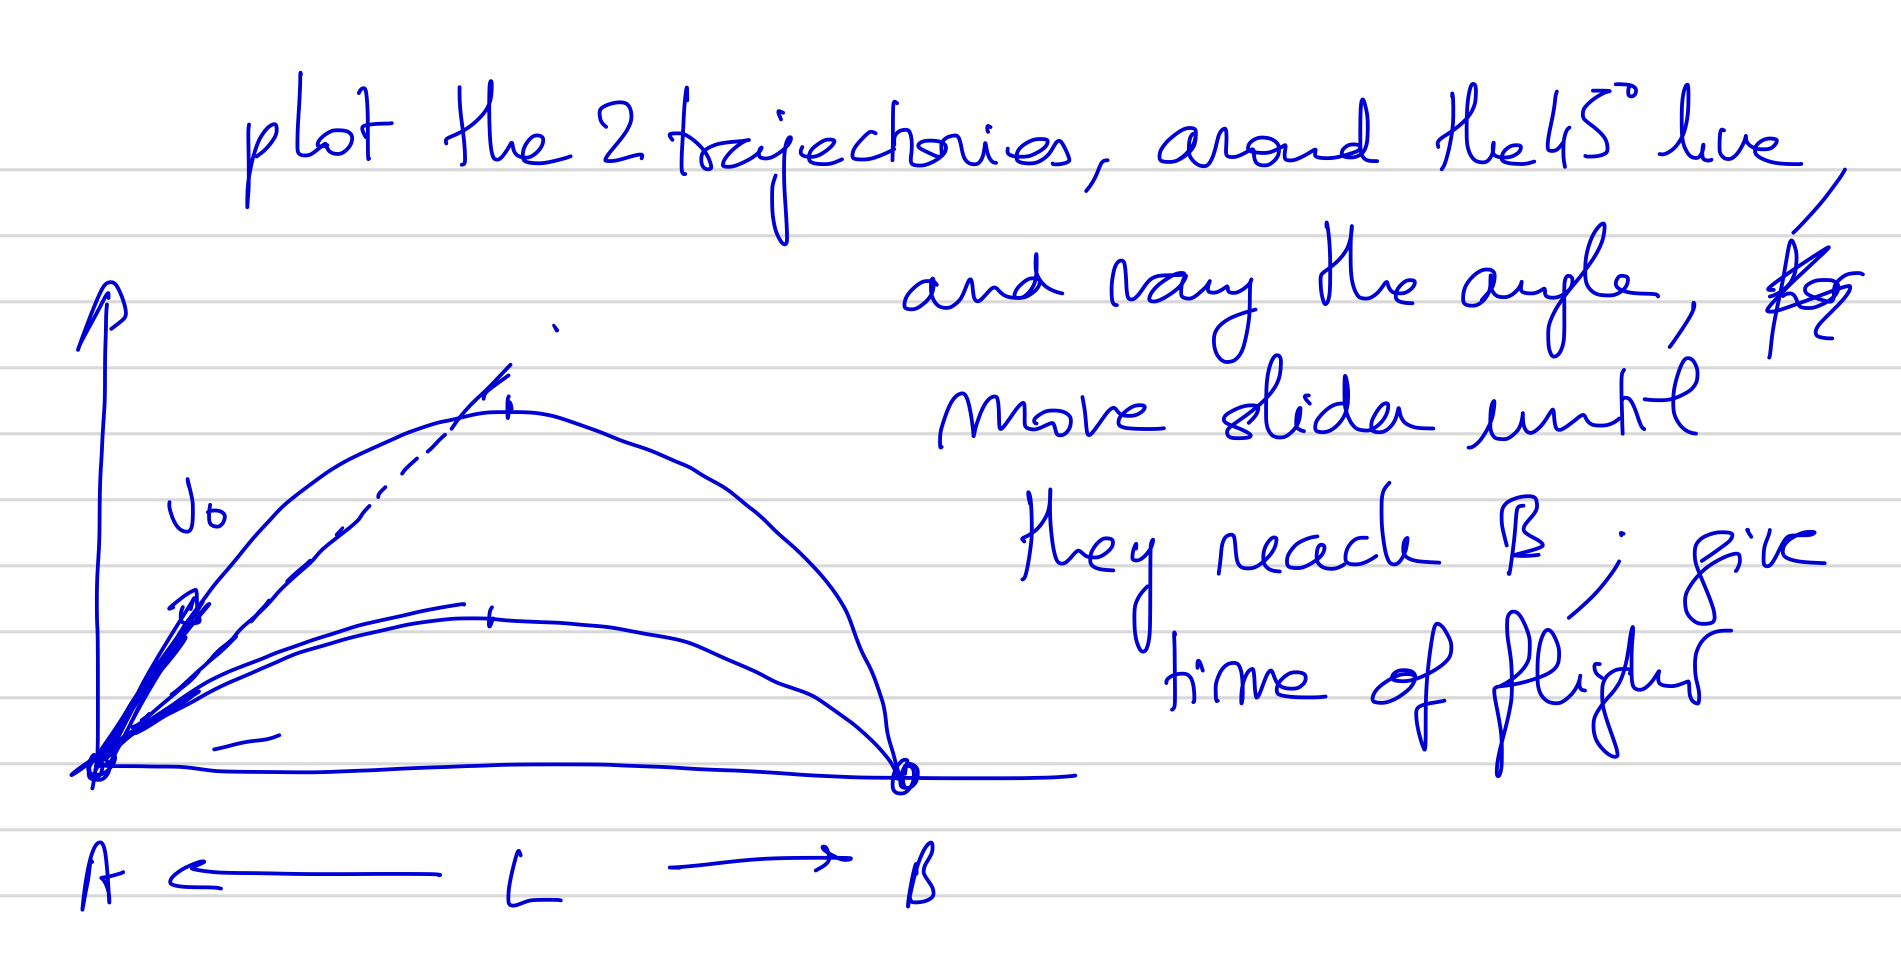 plot the 2 trajectories, around the 45° line,
and vary the angle,
move slider until
they reach B; give
time of flight
V₀
A L B